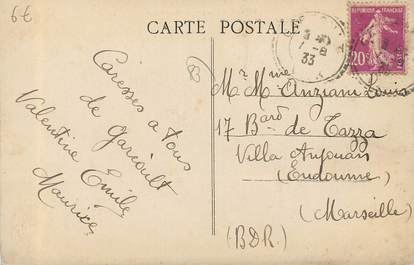 6€
CARTE POSTALE
REPUBLIQUE FRANÇAISE
20c
1-8
33
83
Caresses a tous
de Garéoult
Valentine Emile
Maurice
Mr Mme Anziani Louis
17 Bard de Tazza
Villa Anjouan
(Endoume)
(Marseille)
(BDR)